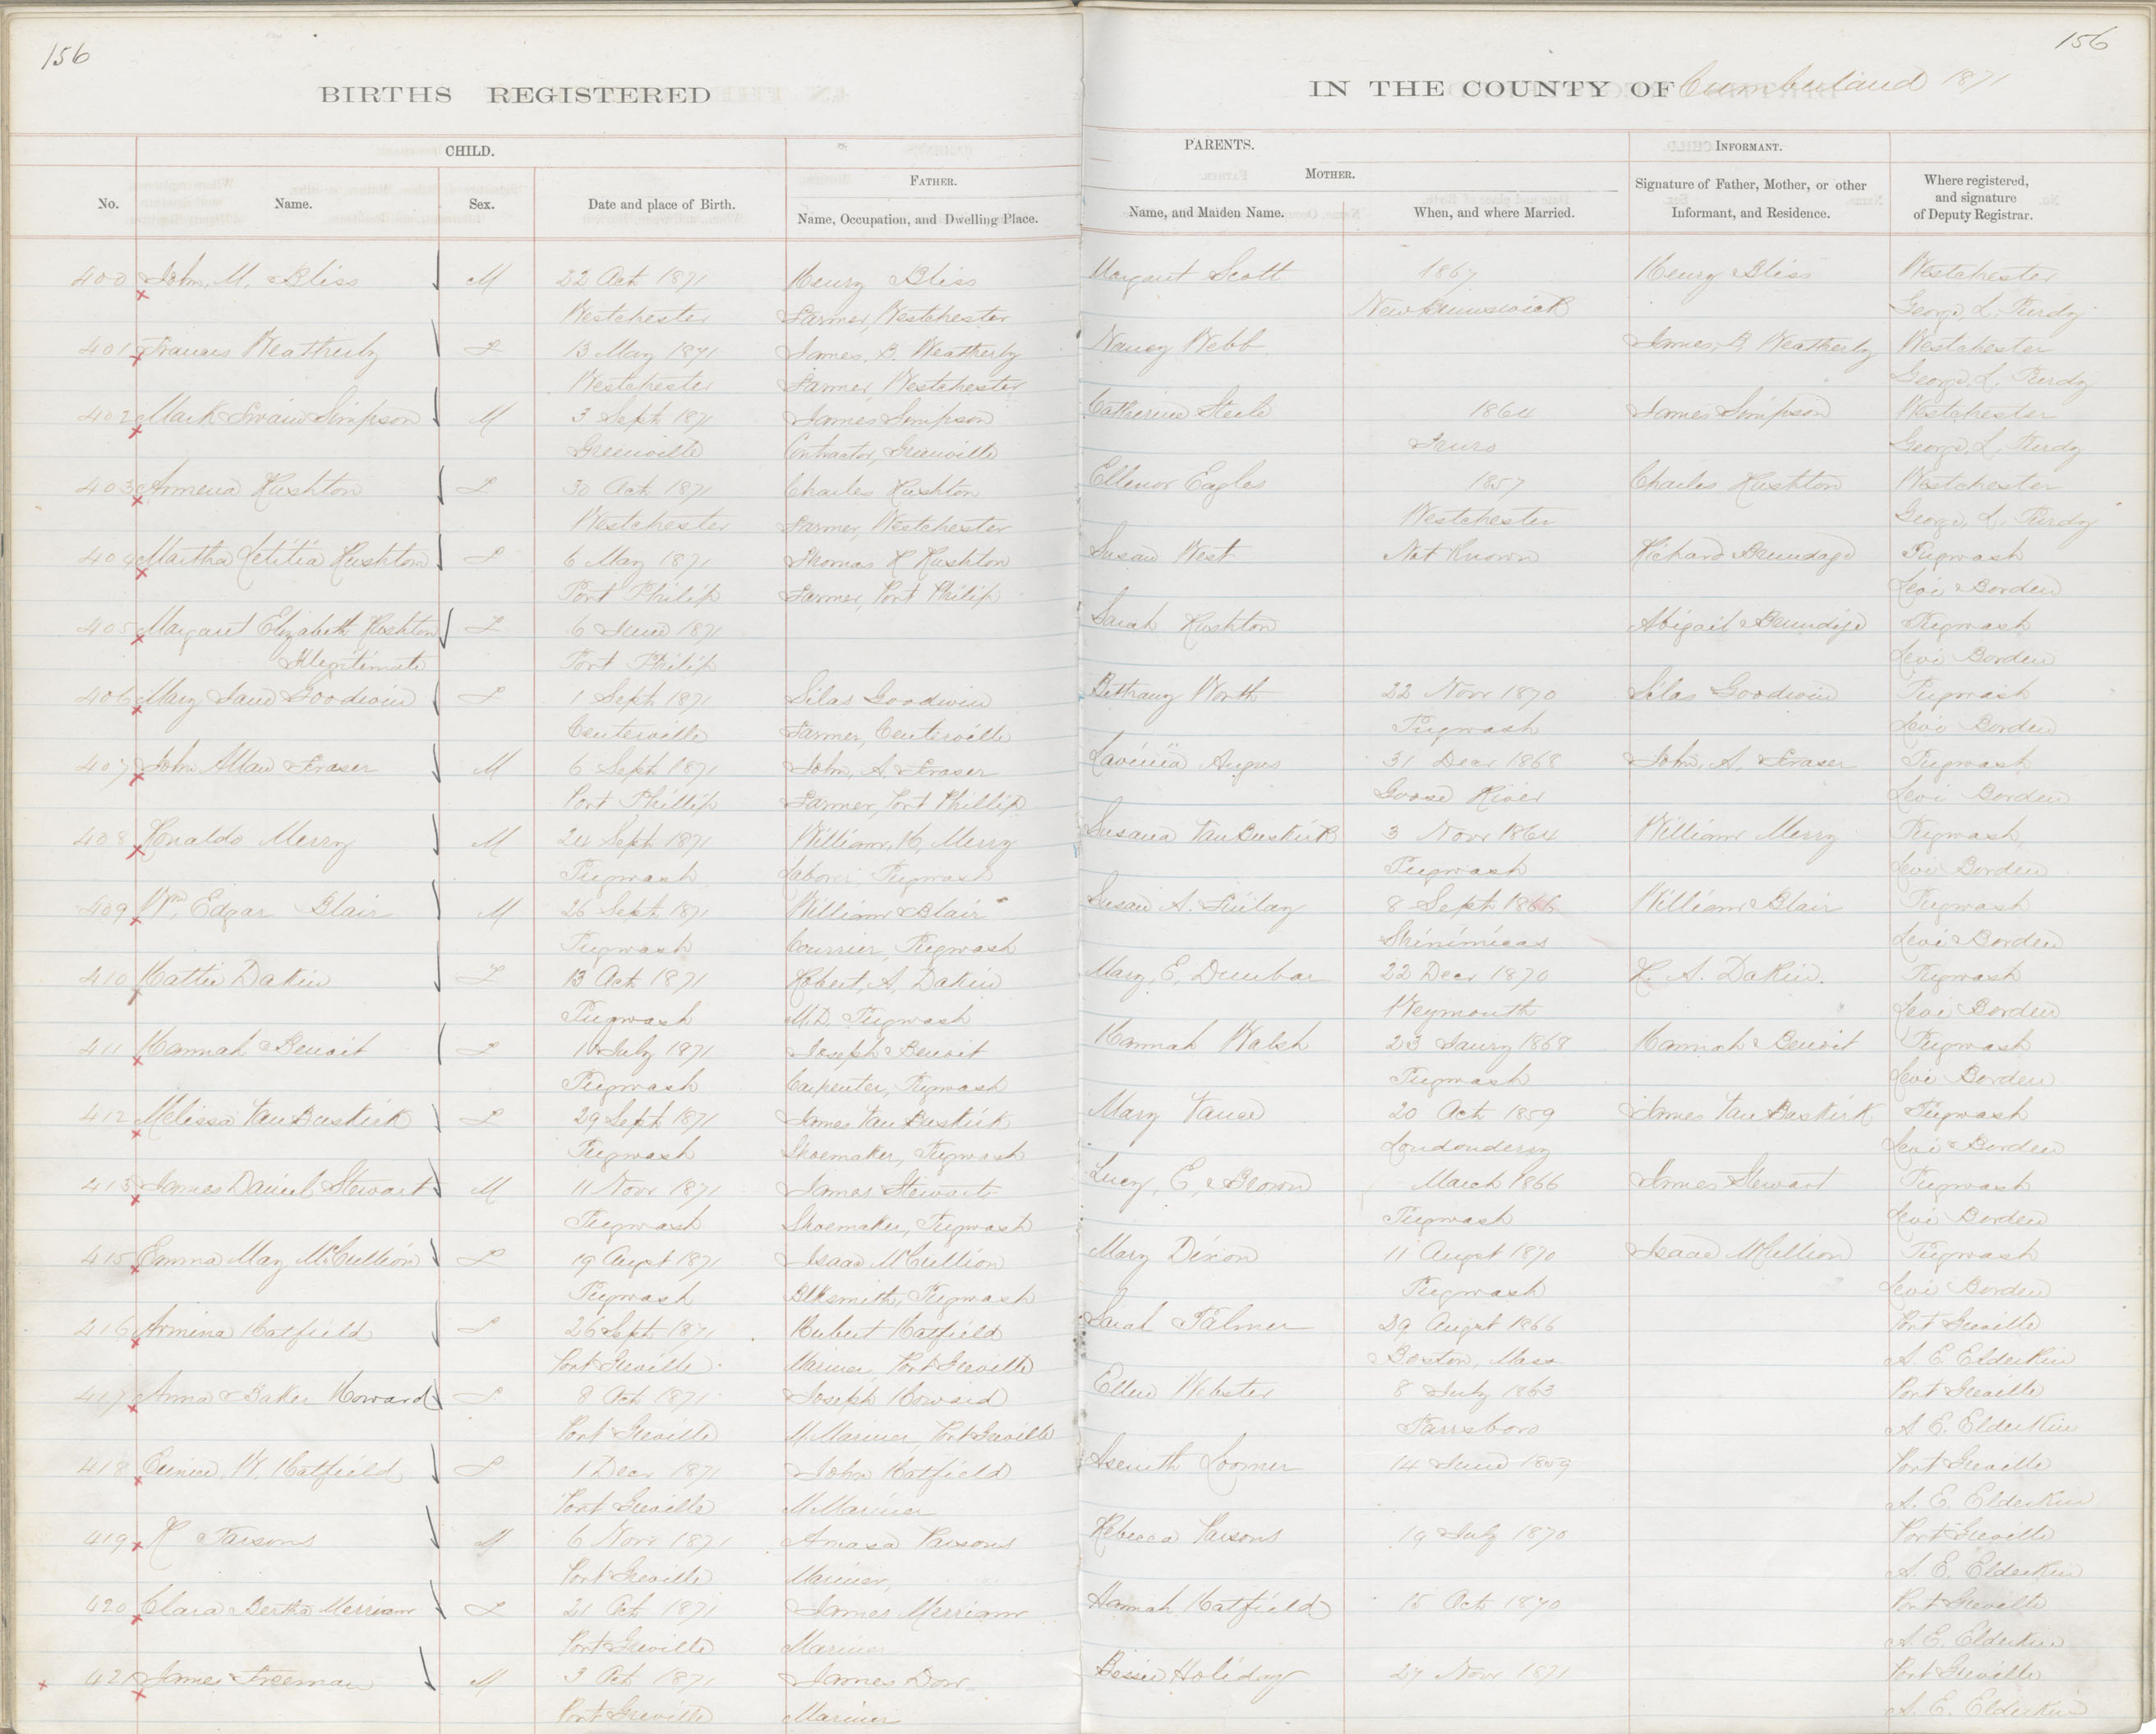 156
156
BIRTHS REGISTERED
IN THE COUNTY OF Cumberland 1871
CHILD.
PARENTS.
INFORMANT.
FATHER.
MOTHER.
No.
Name.
Sex.
Date and place of Birth.
Name, Occupation, and Dwelling Place.
Name, and Maiden Name.
When, and where Married.
Signature of Father, Mother, or other Informant, and Residence.
Where registered, and signature of Deputy Registrar.
400 John, M. Bliss M 22 Oct 1871 Henry Bliss Margaret Scott 1867 Henry Bliss Westchester
Westchester Farmer, Westchester New Brunswick George, L, Purdy
401 Frances Weatherby F 13 May 1871 James, B. Weatherby Nancy Webb James, B, Weatherby Westchester
Westchester Farmer, Westchester George, L, Purdy
402 Mark Swain Simpson M 3 Sept 1871 James Simpson Catherine Steele 1864 James Simpson Westchester
Greenville Contractor, Greenville Truro George, L, Purdy
403 Armena Rushton F 30 Oct 1871 Charles Rushton Ellenor Eagles 1857 Charles Rushton Westchester
Westchester Farmer, Westchester Westchester George, L, Purdy
404 Martha Letitia Rushton F 6 May 1871 Thomas R Rushton Susan West Not Known Richard Brundage Pugwash
Port Philip Farmer, Port Philip Levi Borden
405 Margaret Elizabeth Rushton F 6 June 1871 Sarah Rushton Abigail Brundige Pugwash
Illegitimate Port Philip Levi Borden
406 Mary Jane Goodwin F 1 Sept 1871 Silas Goodwin Bethany Worth 22 Novr 1870 Silas Goodwin Pugwash
Centerville Farmer, Centerville Pugwash Levi Borden
407 John Allan Fraser M 6 Sept 1871 John, A. Fraser Lavinia Angus 31 Decr 1868 John, A, Fraser Pugwash
Port Phillip Farmer, Port Phillip Goose River Levi Borden
408 Ronaldo Merry M 24 Sept 1871 William, H, Merry Susana VanBuskirk 3 Novr 1864 William Merry Pugwash,
Pugwash Labourer Pugwash Pugwash Levi Borden
409 Wm, Edgar Blair M 26 Sept 1871 William Blair Susan A. Finlay 8 Sept 1866 William Blair Pugwash
Pugwash Courrier, Pugwash Shinimicas Levi Borden
410 Hattie Dakin F 13 Oct 1871 Robert, A, Dakin Mary, E, Dunbar 22 Decr 1870 R. A. Dakin. Pugwash
Pugwash M.D. Pugwash Weymouth Levi Borden
411 Hannah Benoit F 10 July 1871 Joseph Benoit Hannah Walsh 23 Janry 1868 Hannah Benoit Pugwash
Pugwash Carpenter, Pugwash Pugwash Levi Borden
412 Melissa VanBuskirk F 29 Sept 1871 James VanBuskirk Mary Vance 20 Oct 1859 James VanBuskirk Pugwash
Pugwash Shoemaker, Pugwash Londonderry Levi Borden
413 James Daniel Stewart M 11 Novr 1871 James Stewart Lucy, E, Brown March 1866 James Stewart Pugwash
Pugwash Shoemaker, Pugwash Pugwash Levi Borden
415 Emma May McCullion F 19 Augst 1871 Isaac McCullion Mary Dixon 11 Augst 1870 Isaac McCullion Pugwash
Pugwash Blksmith, Pugwash Pugwash Levi Borden
416 Armina Hatfield F 26 Sept 1871 Hubert Hatfield Sarah Palmer 29 Augst 1866 Port Greville
Port Greville Mariner, Port Greville Boston, Mass A. E. Elderkin
417 Anna Baker Howard F 8 Oct 1871 Joseph Howard Ellen Webster 8 July 1863 Port Greville
Port Greville M. Mariner, Port Greville Parrsboro A. E. Elderkin
418 Eunice, W, Hatfield F 1 Decr 1871 John Hatfield Aseneith Loomer 14 June 1859 Port Greville
Port Greville M Mariner A. E. Elderkin
419 R Parsons M 6 Novr 1871 Amasa Parsons Rebecca Parsons 19 July 1870 Port Greville
Port Greville Mariner, A. E. Elderkin
420 Clara Bertha Merriam F 21 Oct 1871 James Merriam Hannah Hatfield 15 Oct 1870 Port Greville
Port Greville Mariner A. E. Elderkin
421 James Freeman M 3 Oct 1871 James Dow Bessie Holiday 27 Novr 1871 Port Greville
Port Greville Mariner A. E. Elderkin